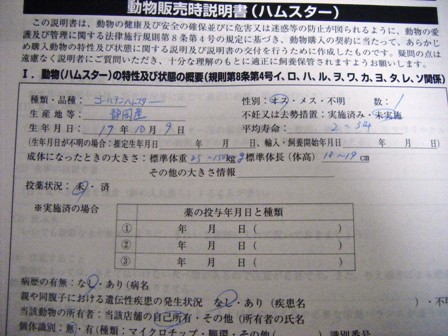 動物販売時説明書(ハムスター)
この説明書は、動物の健康及び安全の確保並びに危害又は迷惑等の防止が図られるように、動物の愛
護及び管理に関する法律施行規則第8条第4号の規定に基づき、購入の契約に当たって、あらかじ
め購入動物の特性及び状態に関する説明及び説明書の交付を行うために作成したものです。疑問の点は
遠慮なく説明者にご質問いただき、十分な理解のもとに適正に飼養保管されますようお願いします。
Ⅰ.動物(ハムスター)の特性及び状態の概要(規則第8条第4号イ、ロ、ハ、ル、ヲ、ワ、カ、ヨ、タ、レ、ソ関係)
種類・品種: ゴールデンハムスター 性別:オス・メス・不明 数: 1
生産地等: 静岡産 不妊又は去勢措置:実施済み・未実施
生年月日: 19年10月9日 平均寿命: 2~3年
(生年月日が不明の場合:推定生年月日 年 月 日、輸入・飼養開始年月日 年 月 日)
成体になったときの大きさ:標準体重 kg g 標準体長(体高) 18~19 cm
その他の大きさ情報
投薬状況:未・済
※実施済の場合 薬の投与年月日と種類
① 年 月 日( )
② 年 月 日( )
③ 年 月 日( )
病歴の有無:なし・あり(病名
親や同腹子における遺伝性疾患の発生状況 なし・あり(疾患名
当該動物の所有者:当該店舗の自己所有・その他(所有者の氏名
個体識別:無・有(種類:マイクロチップ・脚環・その他( 識別番号